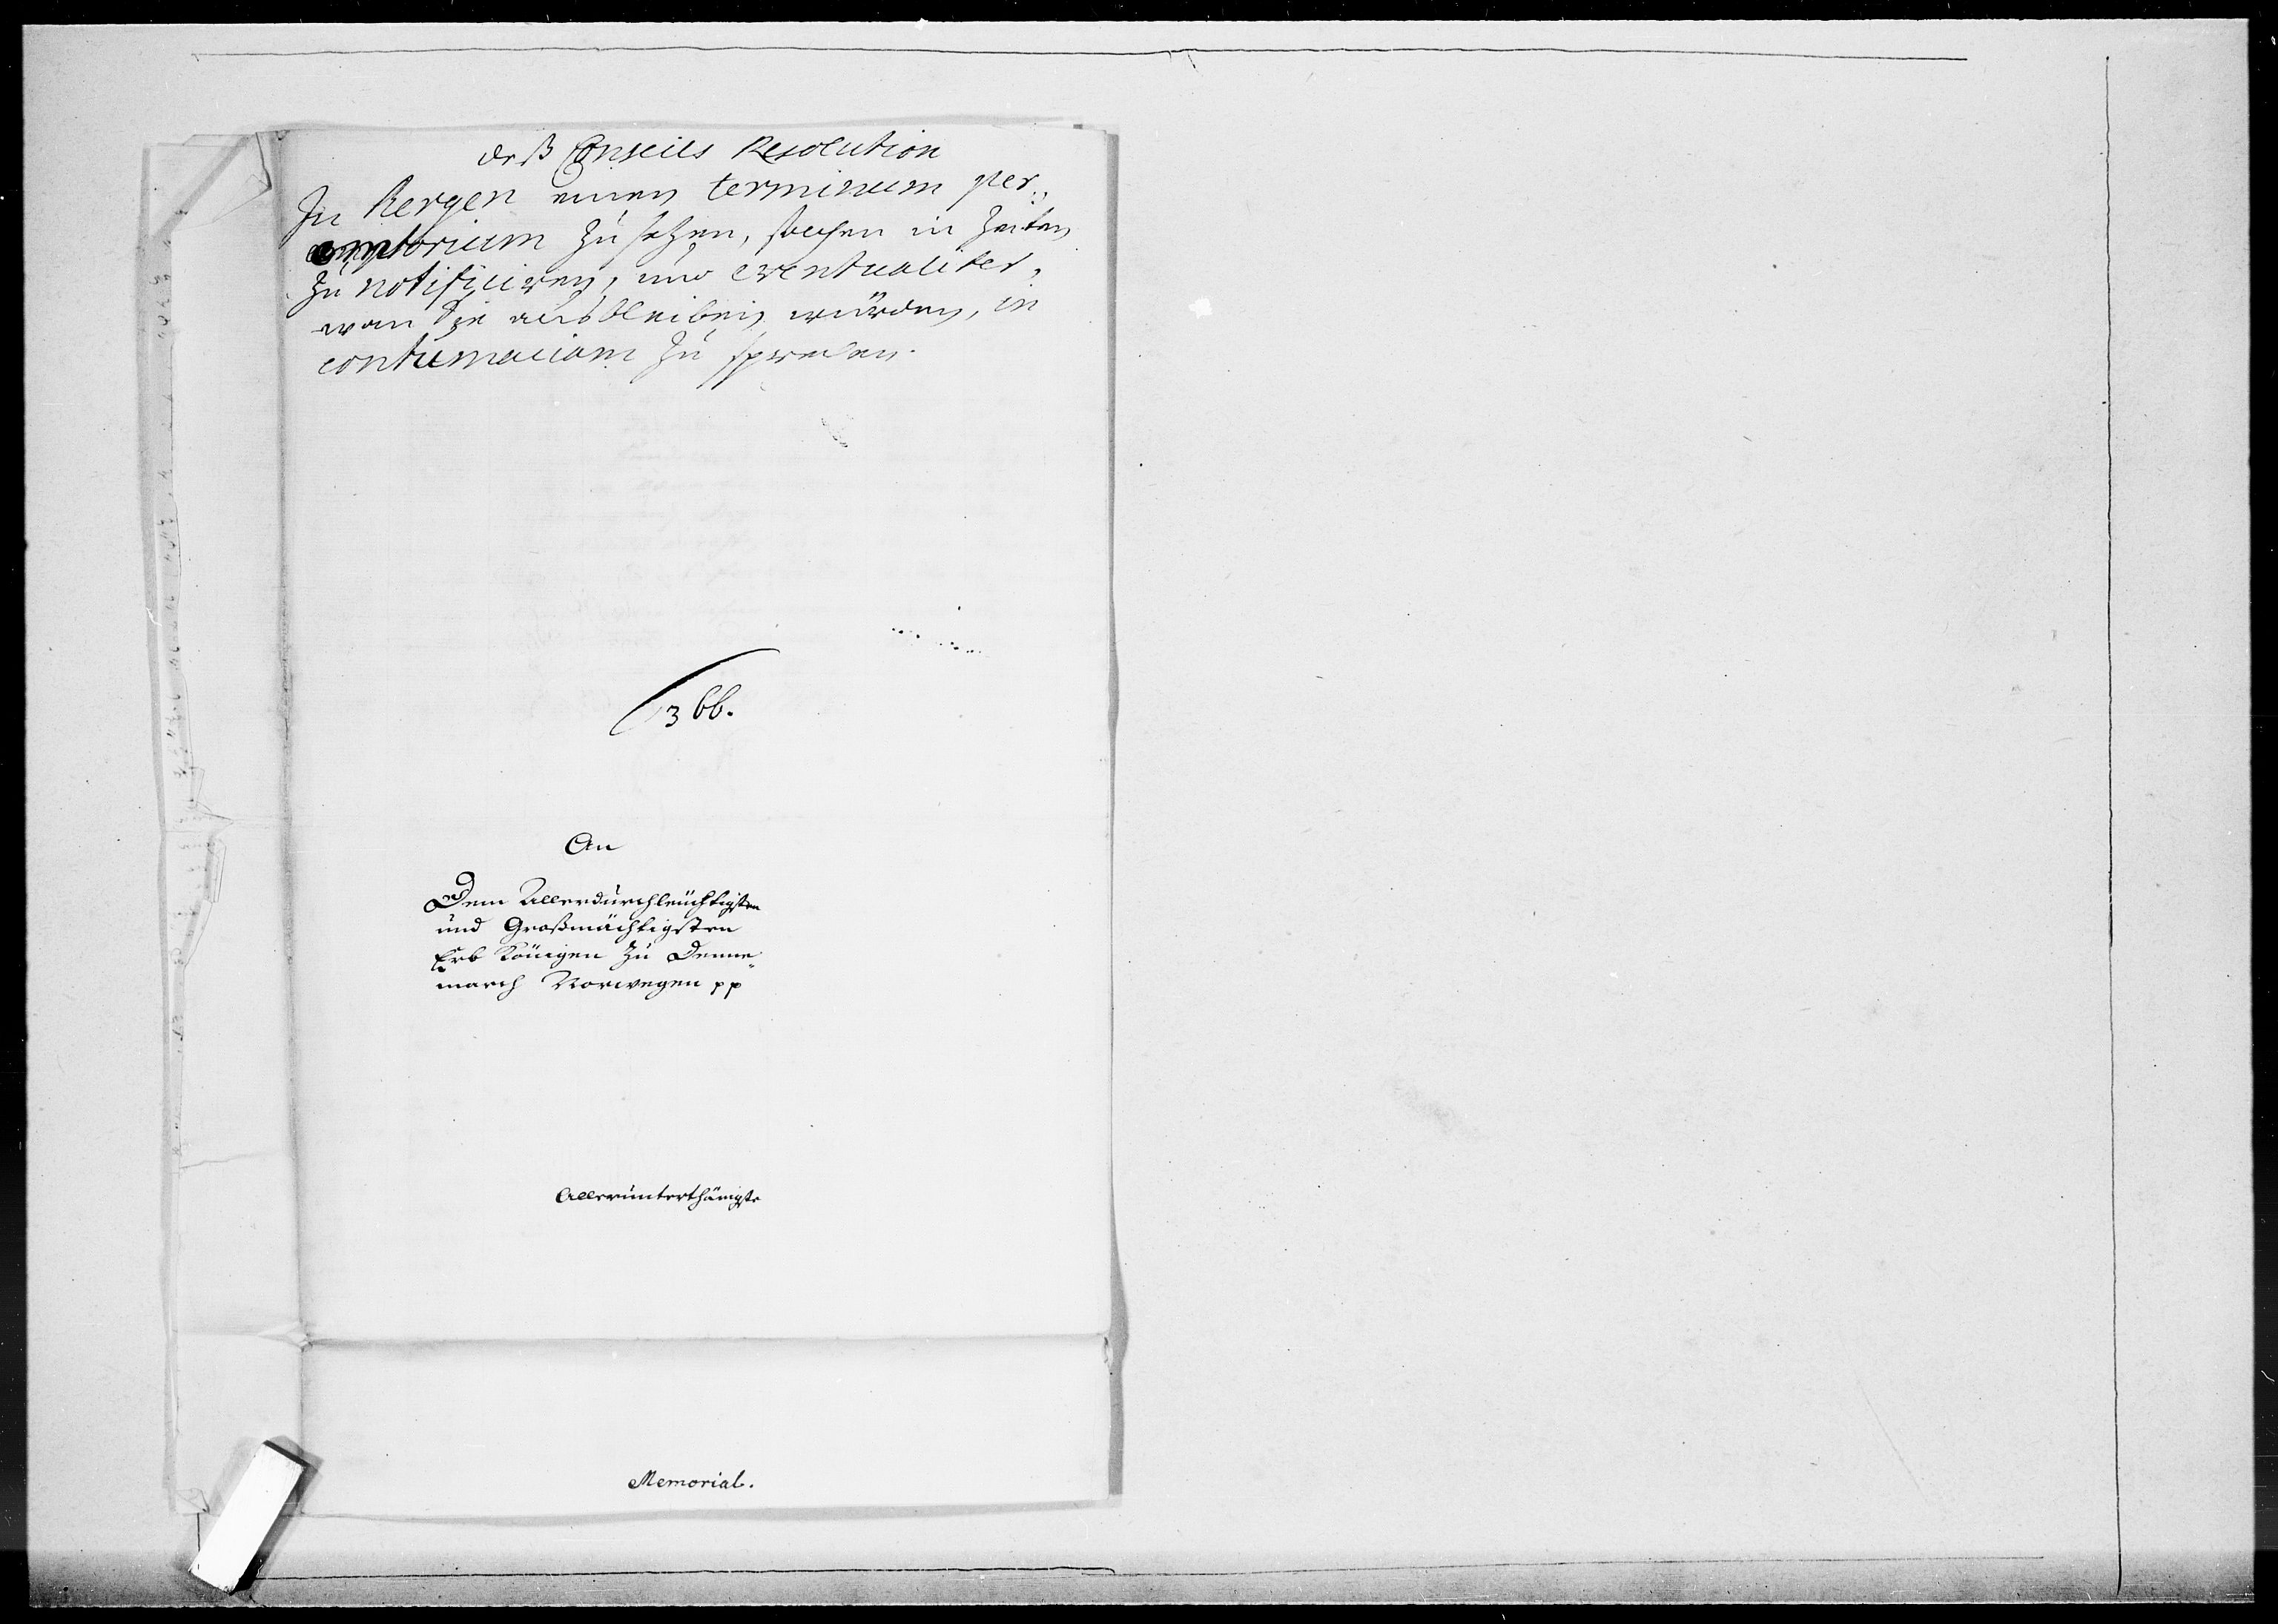 deß Conseils Resolution
In Bergen einen terminum per„
emtorium zu setzen, solchen in Zeiten
zu notificiren, und eventualiter,
wan Sie ausbleiben würden, in
contumaciam zu sprechen.
366.
An
Dem Allerdurchleüchtigsten
und Großmächtigsten
Erb Königen zu Denne„
march Norwegen pp
Allerunterthänigste
Memorial.